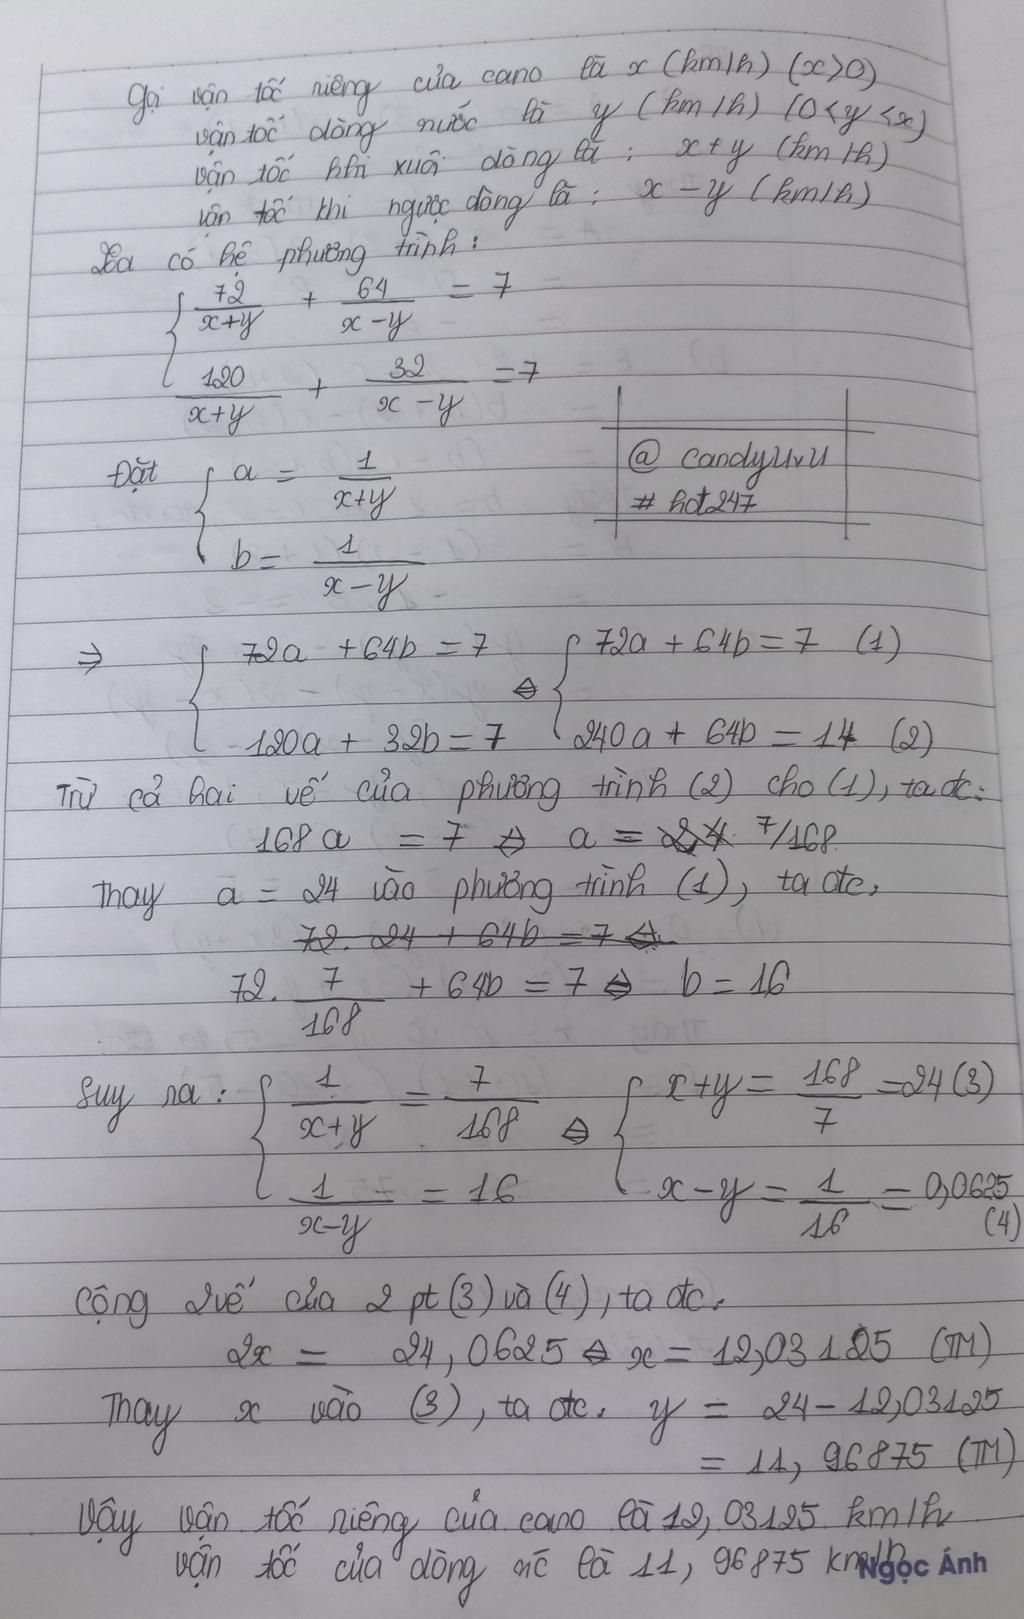 Gọi vận tốc riêng của cano là x (km/h) (x>0)
vận tốc dòng nước là y (km/h) (0<y<x)
vận tốc khi xuôi dòng là : x+y (km/h)
vận tốc khi ngược dòng là : x-y (km/h)
Ta có hệ phương trình :
{ 72/(x+y) + 64/(x-y) = 7
120/(x+y) + 32/(x-y) = 7
Đặt { a = 1/(x+y)
b = 1/(x-y)
@ candyUvU
# hot247
⇒ { 72a + 64b = 7 ⇔ { 72a + 64b = 7 (1)
120a + 32b = 7 240a + 64b = 14 (2)
Trừ cả hai vế của phương trình (2) cho (1), ta đc:
168a = 7 ⇔ a = 24 7/168
Thay a = 24 vào phương trình (1), ta đc.
72. 24 + 64b = 7 ⇔
72. 7/168 + 64b = 7 ⇔ b = 16
Suy ra : { 1/(x+y) = 7/168 ⇔ { x+y = 168/7 = 24 (3)
1/(x-y) = 16 x-y = 1/16 = 0,0625 (4)
Cộng 2 vế của 2 pt (3) và (4), ta đc.
2x = 24,0625 ⇔ x = 12,03125 (TM)
Thay x vào (3), ta đc. y = 24 - 12,03125
= 11,96875 (TM)
Vậy vận tốc riêng của cano là 12,03125 km/h
vận tốc của dòng nc là 11,96875 km/h
Ngọc Ánh